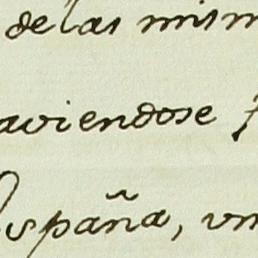 delas mism
aviendose
España, vn